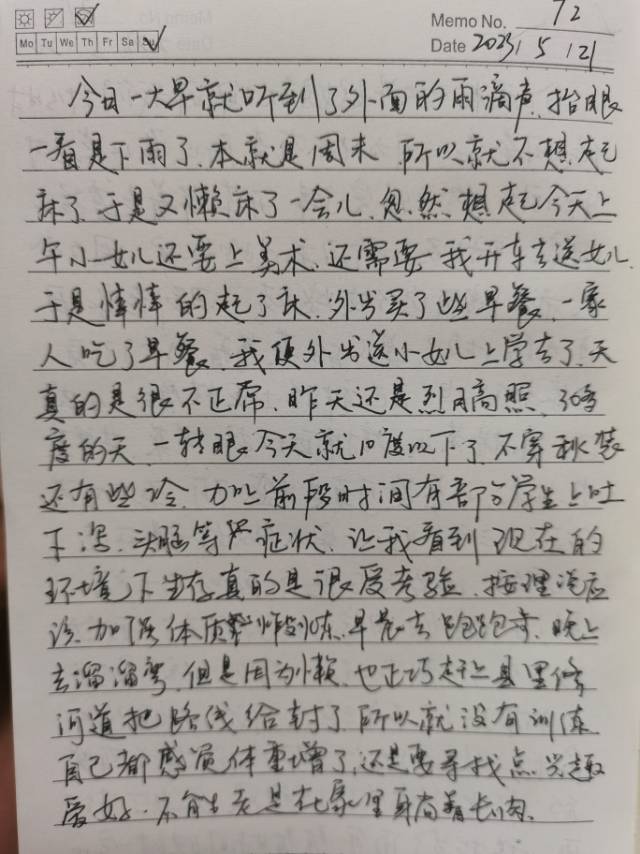 Memo No. 72
Mo Tu We Th Fr Sa
Date 2023 / 5 / 21
今日一大早就听到了外面的雨滴声,抬眼
一看是下雨了,本就是周末 所以就不想起
床了,于是又懒床了一会儿,忽然想起今天上
午小女儿还要上美术,还需要我开车去送女儿,
于是悻悻的起了床,外出买了些早餐,一家
人吃了早餐,我便外出送小女儿上学去了,天
真的是很不正常,昨天还是烈日高照,30多
度的天,一转眼今天就10度以下了,不穿秋装
还有些冷,加上前段时间有部分学生上吐
下泻,头脑等症状,让我看到现在的
环境下生存真的是很受考验,按理说应
该加强体质锻炼,早晨去跑跑步,晚上
去溜溜弯,但是因为懒,也正巧赶上县里修
河道把路线给封了,所以就没有训练,
自己都感觉体重增了,还是要寻找点兴趣
爱好,不能老是在家里躺着长肉。